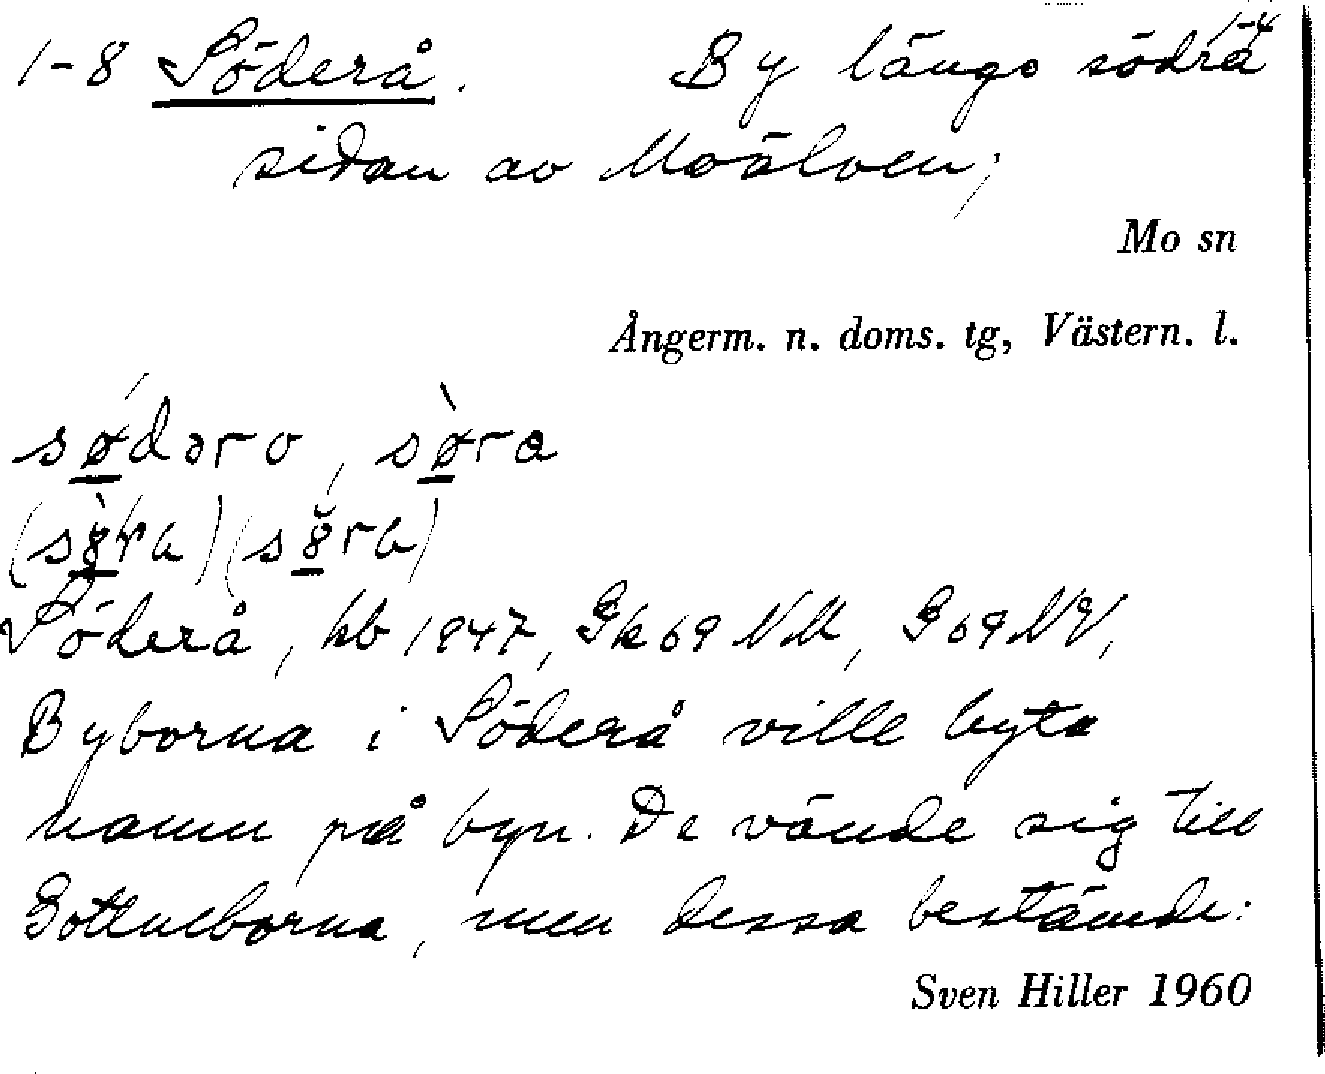 1-4
1-8 Söderå. By längs södra
sidan av Moälven;
Mo sn
Ångerm. n. doms. tg, Västern. l.
sǿdəro, sø̀ra
(sø̀ra) (sø̆ra)
Söderå, kb 1847, Gk 69 NM, G 69 NV,
Byborna i Söderå ville byta
namn på byn. De vände sig till
Gottneborna, men dessa bestämde:
Sven Hiller 1960